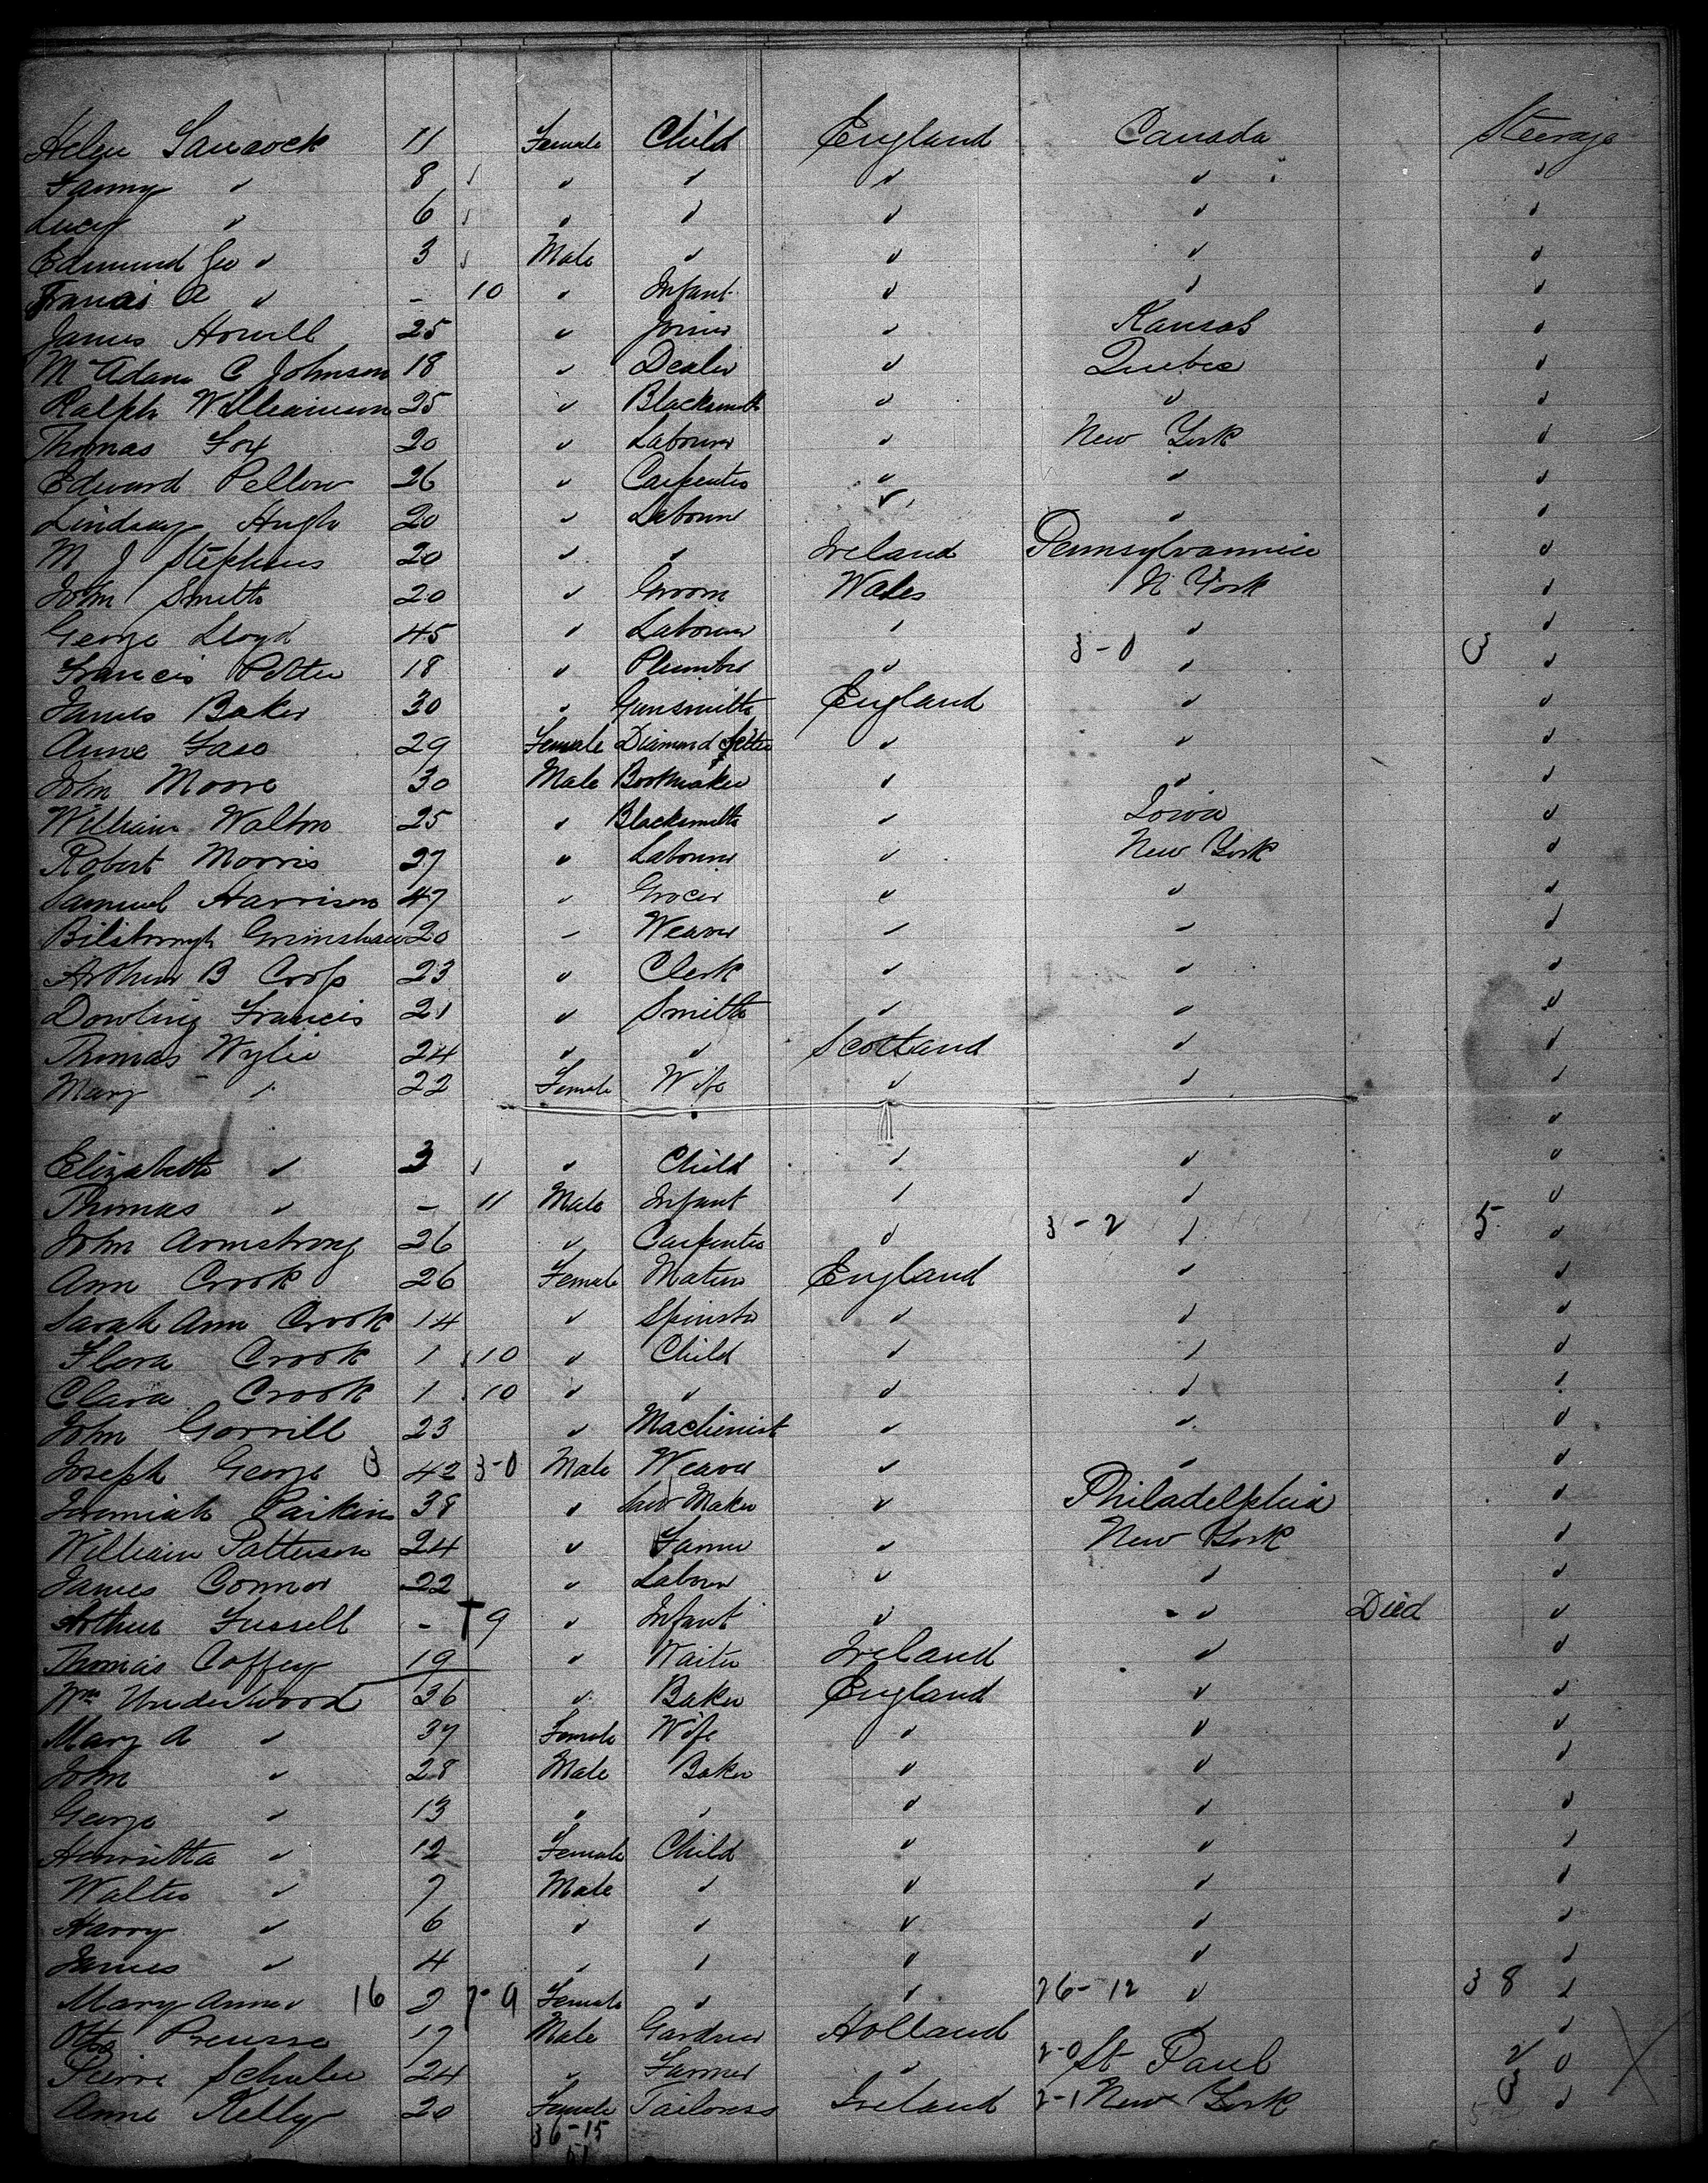 Helen Hancock 11 Female Child England Canada Steerage
Fanny " 8 " " " " "
Lucy " 6 " " " " "
Edmund Geo " 3 Male " " " "
Francis A " - 10 " Infant " " "
James Howell 25 " Joiner " Kansas "
Mc Adam C Johnson 18 " Dealer " Quebec "
Ralph Williamson 25 " Blacksmith " " "
Thomas Fox 20 " Labourer " New York "
Edward Pellow 26 " Carpenter " " "
Lindsay Hugh 20 " Labourer " " "
M J Stephens 20 " " Ireland Pennsylvannia "
John Smith 20 " Groom Wales N York "
George Lloyd 45 " Labourer " " "
Francis Potter 18 " Plumber " 3-0 " 3 "
James Baker 30 " Gunsmith England " "
Anne 29 Female Diamond Setter " " "
John Moore 30 Male Bootmaker " " "
William Walton 25 " Blacksmith " Iowa "
Robert Morris 27 " Labourer " New York "
Samuel Harrison 47 " Grocer " " "
Bilsborough Grimshaw 20 " Weaver " " "
Arthur B Cross 23 " Clerk " " "
Dowling Francis 21 " Smith " " "
Thomas Wylie 24 " " Scotland " "
Mary " 22 Female Wife " " "
"
Elizabeth " 3 " Child " " "
Thomas " - 11 Male Infant " " "
John Armstrong 26 " Carpenter " 3-2 " 5 "
Ann Crook 26 Female Matron England " "
Sarah Ann Crook 14 " Spinster " " "
Flora Crook 1 10 " Child " " "
Clara Crook 1 10 " " " " "
John Gorrill 23 " Machinist " " "
Joseph George 3 42 3-0 Male Weaver " " "
Jeremiah Parkins 38 " Maker " Philadelphia "
William Patterson 24 " Farmer " New York "
James Connor 22 " Labourer " " "
Arthur Fussell - † 9 " Infant " " Died "
Thomas Coffey 19 " Waiter Ireland " "
Wm Underwood 36 " Baker England " "
Mary A " 37 Female Wife " " "
John " 28 Male Baker " " "
George " 13 " " " " "
Henrietta " 12 Female Child " " "
Walter " 7 Male " " " "
Harry " 6 " " " " "
James " 4 " " " " "
Mary Anne " 16 2 7-9 Female " " 26-12 " 38 "
Otto Preusse 17 Male Gardner Holland " "
Pierre Schuler 24 " Farmer " 2-0 St Paul 2 "
Anne Kelly 20 Female Tailoress Ireland 2-1 New York 3 "
36-15
51